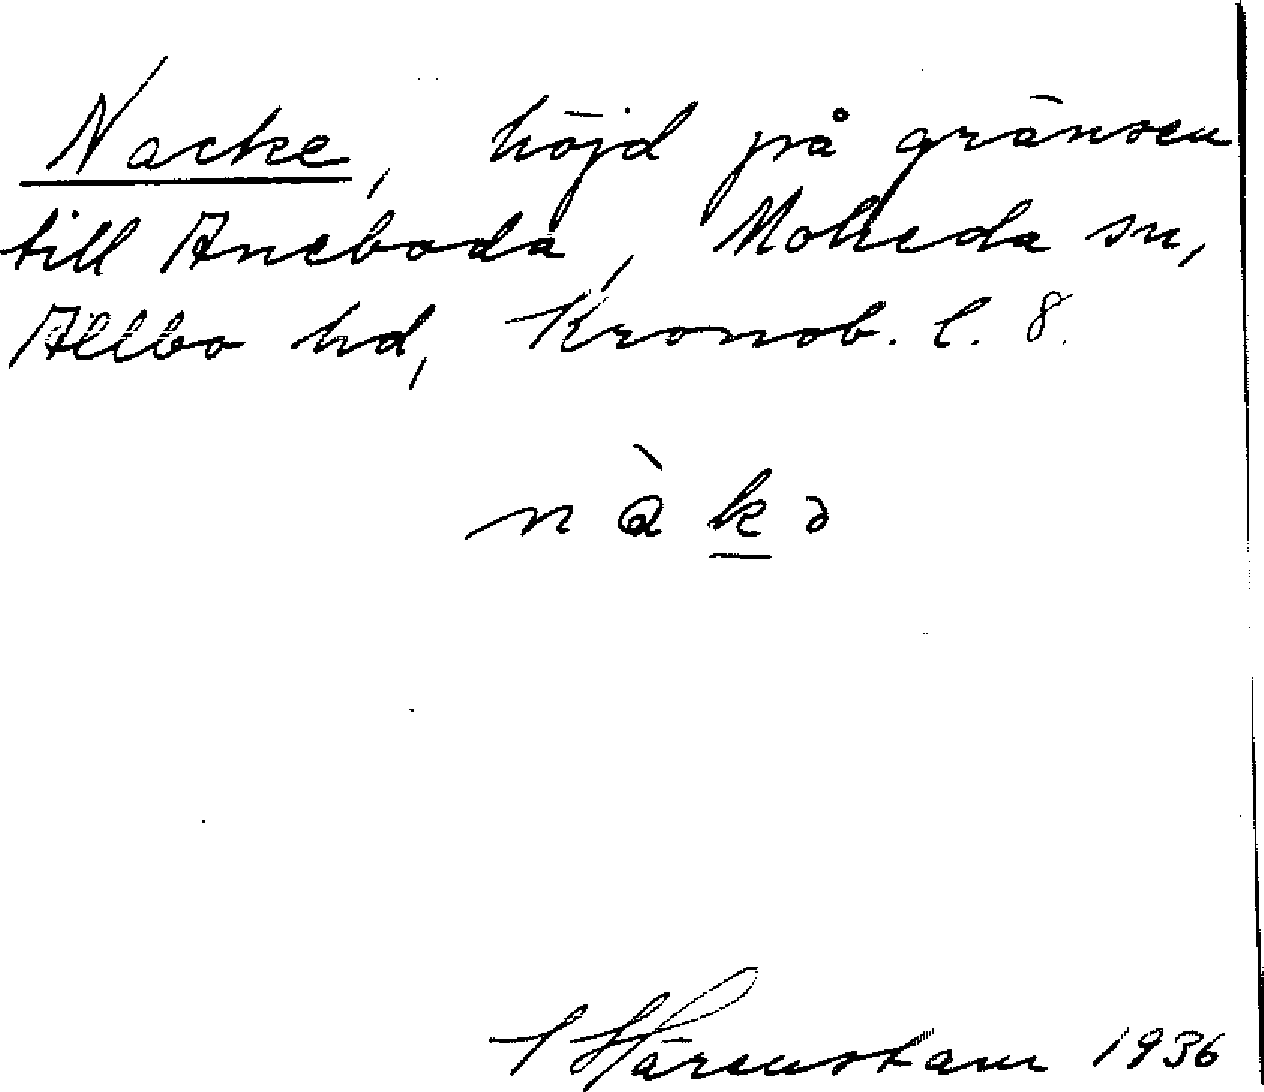 Nacke, höjd på gränsen
till Aneboda, Moheda sn,
Allbo hd, Kronob. l. 8.
nàkə
Härenstam 1936